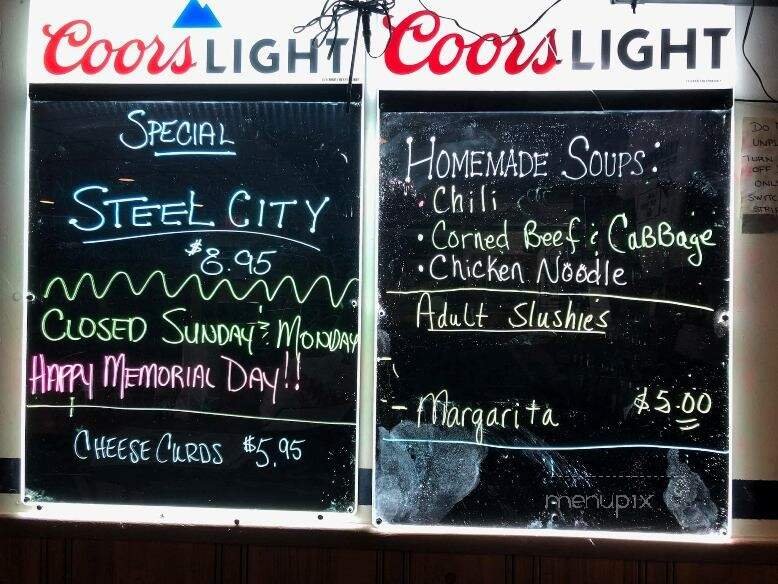 Coors LIGHT
SPECIAL
STEEL CITY
$8.95
CLOSED SUNDAY & MONDAY
HAPPY MEMORIAL DAY!!
CHEESE CURDS $5.95
Coors LIGHT
HOMEMADE SOUPS:
• Chili
• Corned Beef & CaBBage
• Chicken Noodle
Adult Slushies
- Margarita $5.00
menupix
DO
TURN
OFF
ONL
SWITC